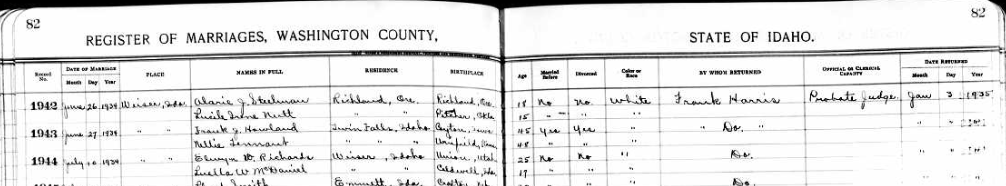 82
82
REGISTER OF MARRIAGES, WASHINGTON COUNTY, STATE OF IDAHO.
Record No. DATE OF MARRIAGE Month Day Year PLACE NAMES IN FULL RESIDENCE BIRTHPLACE Age Married Before Divorced Color or Race BY WHOM RETURNED OFFICIAL OR CLERICAL CAPACITY DATE RETURNED Month Day Year
1942 June 26 1934 Weiser, Ida. J. Steelman Richland, Ore. Richland, Ore. 18 No no. White Frank Harris Probate Judge Jan 3 1935
Lucile Irene Nutt " " Pitcher, Okla. 15 " " "
1943 June 27 1934 " " Frank J. Howland Twin Falls, Idaho Iowa 45 Yes Yes " " Do. " " " "
Nellie Tennant " " " 48 " " "
1944 July 10 1934 " " Elwyn D. Richards Weiser, Idaho Union, Utah 25 No No " Do. " " "
Luella W. McDaniel " " Caldwell, Ida. 19 " " "
Smith Emmett, Ida. Do.